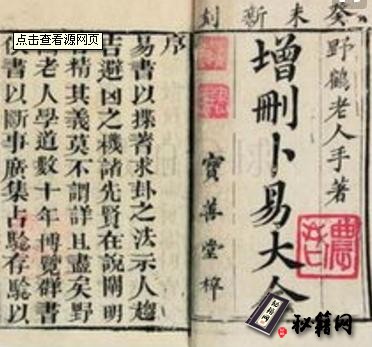 点击查看源网页
癸未新刻
野鶴老人手著
增刪卜易大全
寶善堂梓
序
易書以揲蓍求卦之法示人趨
吉避凶之機諸先賢在說闡明
者精其義莫不謂詳且盡矣野
老人學道數十年博覽群書
書以斷事廣集占驗存驗以
秘籍网